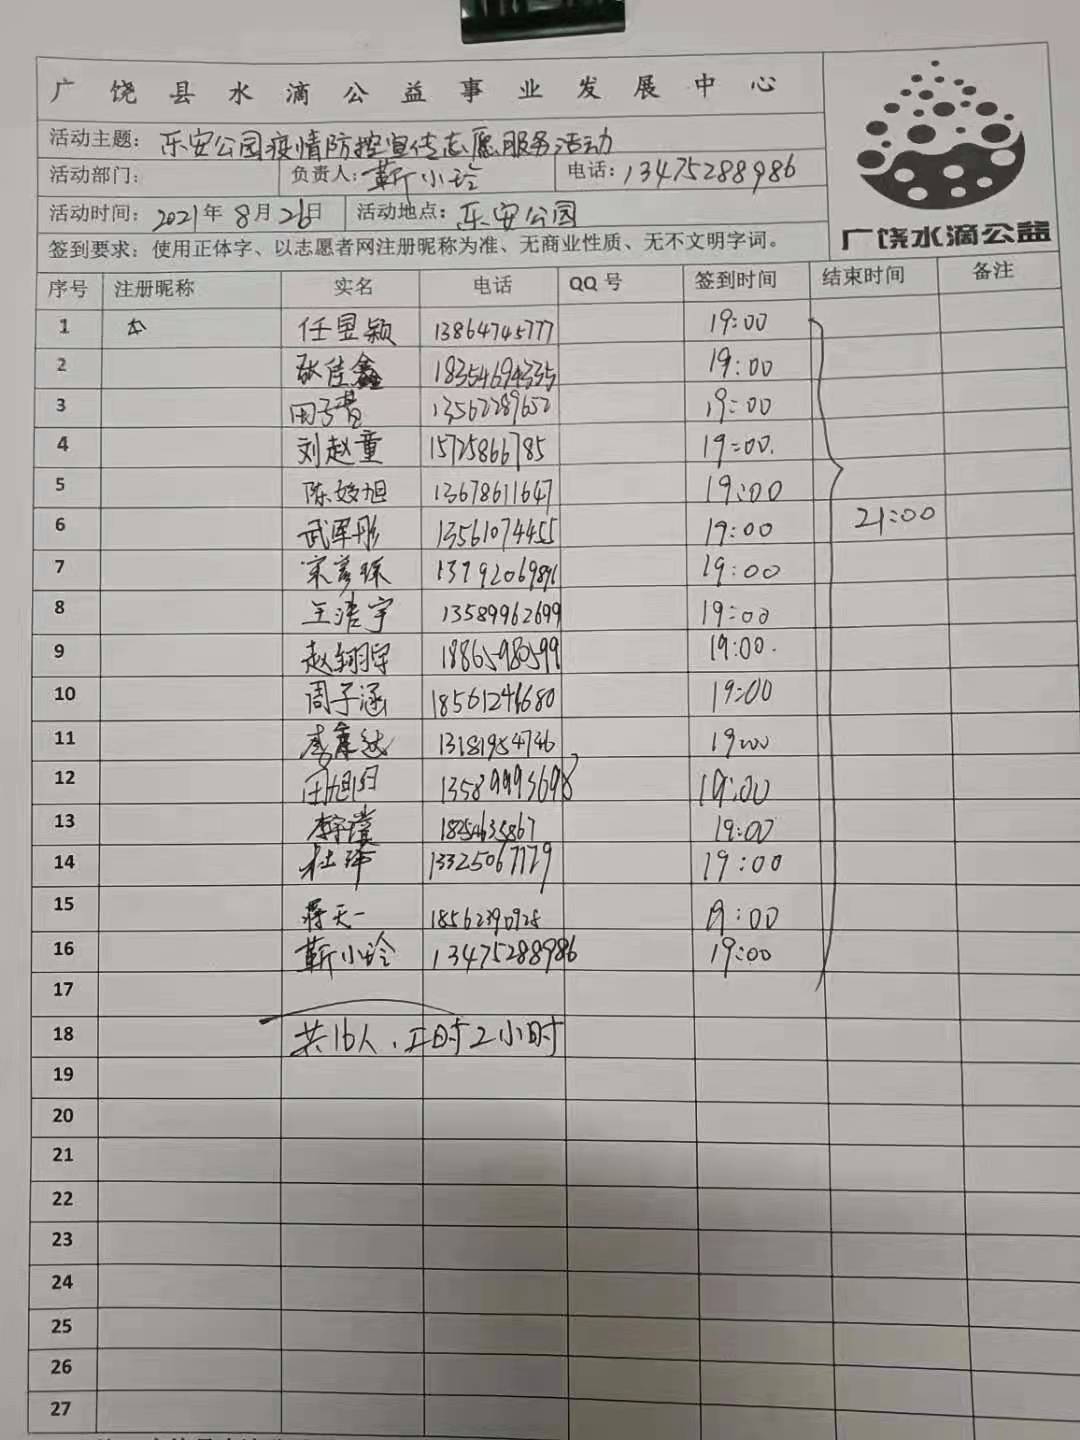 广饶县水滴公益事业发展中心
活动主题：乐安公园疫情防控宣传志愿服务活动
活动部门： 负责人：靳小玲 电话：13475288986
活动时间：2021年8月26日 活动地点：乐安公园
签到要求：使用正体字、以志愿者网注册昵称为准、无商业性质、无不文明字词。
广饶水滴公益
序号 注册昵称 实名 电话 QQ号 签到时间 结束时间 备注
1 任昱颖 13864745777 19:00
2 张佳鑫 18354694335 19:00
3 13562289652 19:00
4 刘赵童 15725866785 19:00.
5 陈姣旭 13678611647 19:00
6 武军彤 13561074455 19:00 21:00
7 宋彦琛 19:00
8 王浩宇 13589962699 19:00
9 赵翔宇 18865980599 19:00.
10 周子涵 18561246680 19:00
11 13181954746 19:00
12 田旭阳 13589993698 19:00
13 李宇璞 18254635867 19:00
14 杜泽 13325067179 19:00
15 蒋天一 18562390928 19:00
16 靳小玲 13475288986 19:00
17
18 共16人，工时2小时
19
20
21
22
23
24
25
26
27